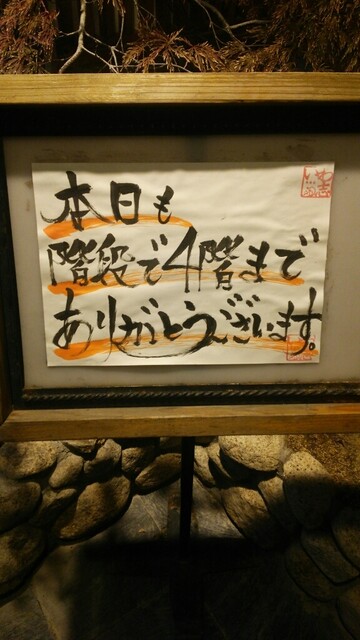 本日も
階段で4階まで
ありがとうございます。